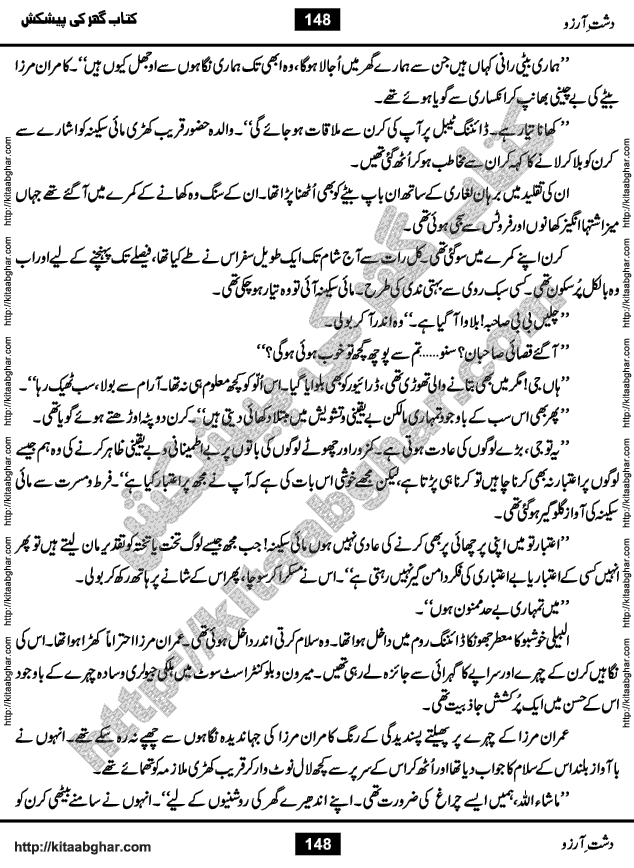 کتاب گھر کی پیشکش 148 دشتِ آرزو
’’ہماری بیٹی رانی کہاں ہیں جن سے ہمارے گھر میں اُجالا ہوگا، وہ ابھی تک ہماری نگاہوں سے اوجھل کیوں ہیں‘‘۔ کامران مرزا
بیٹے کی بے چینی بھانپ کر انکساری سے گویا ہوئے تھے۔
’’کھانا تیار ہے۔ ڈائننگ ٹیبل پر آپ کی کرن سے ملاقات ہو جائے گی‘‘۔ والدہ حضور قریب کھڑی مائی سکینہ کو اشارے سے
کرن کو بلا کر لانے کا کہہ کر ان سے مخاطب ہو کر اُٹھ گئی تھیں۔
ان کی تقلید میں برہان لغاری کے ساتھ ان باپ بیٹے کو بھی اُٹھنا پڑا تھا۔ ان کے سنگ وہ کھانے کے کمرے میں آ گئے تھے جہاں
میز اشتہا انگیز کھانوں اور فروٹس سے سجی ہوئی تھی۔
کرن اپنے کمرے میں سو گئی تھی۔ کل رات سے آج شام تک ایک طویل سفر اس نے طے کیا تھا، فیصلے تک پہنچنے کے لیے اور اب
وہ بالکل پُرسکون تھی۔ کسی سبک روی سے بہتی ندی کی طرح۔ مائی سکینہ آئی تو وہ تیار ہو چکی تھی۔
’’چلیں بی بی صاحبہ! بلاوا آ گیا ہے۔‘‘ وہ اندر آ کر بولی۔
’’آ گئے قصائی صاحبان؟ سنو...... تم سے پوچھ گچھ تو خوب ہوئی ہوگی؟‘‘
’’ہاں جی! مگر میں بھی بتانے والی تھوڑی تھی، ڈرائیور کو بھی بلوایا گیا۔ اس اُلّو کو کچھ معلوم ہی نہ تھا۔ آرام سے بولا، سب ٹھیک رہا‘‘۔
’’پھر بھی اس سب کے باوجود تمہاری مالکن بے یقینی و تشویش میں مبتلا دکھائی دیتی ہیں‘‘۔ کرن دوپٹہ اوڑھتے ہوئے گویا تھی۔
’’یہ تو جی، بڑے لوگوں کی عادت ہوتی ہے۔ کمزور اور چھوٹے لوگوں کی باتوں پر بے اطمینانی و بے یقینی ظاہر کرنے کی وہ ہم جیسے
لوگوں پر اعتبار نہ بھی کرنا چاہیں تو کرنا ہی پڑتا ہے، لیکن مجھے خوشی اس بات کی ہے کہ آپ نے مجھ پر اعتبار کیا ہے‘‘۔ فرط و مسرت سے مائی
سکینہ کی آواز گلوگیر ہو گئی تھی۔
’’اعتبار تو میں اپنی پرچھائی پر بھی کرنے کی عادی نہیں ہوں مائی سکینہ! جب مجھ جیسے لوگ تخت یا تختہ کو تقدیر مان لیتے ہیں تو پھر
انہیں کسی کے اعتبار یا بے اعتباری کی فکر دامن گیر نہیں رہتی ہے‘‘۔ اس نے مسکرا کر سوچا، پھر اس کے شانے پر ہاتھ رکھ کر بولی۔
’’میں تمہاری بے حد ممنون ہوں‘‘۔
البیلی خوشبو کا معطر جھونکا ڈائننگ روم میں داخل ہوا تھا۔ وہ سلام کرتی اندر داخل ہوئی تھی۔ عمران مرزا احتراماً کھڑا ہوا تھا۔ اس کی
نگاہیں کرن کے چہرے اور سراپے کا گہرائی سے جائزہ لے رہی تھیں۔ میرون و بلو کنٹراسٹ سوٹ میں ہلکی جیولری و سادہ چہرے کے باوجود
اس کے حسن میں ایک پُرکشش جاذبیت تھی۔
عمران مرزا کے چہرے پر پھیلتے پسندیدگی کے رنگ کامران مرزا کی جہاندیدہ نگاہوں سے چھپے نہ رہ سکے تھے۔ انہوں نے
با آواز بلند اس کے سلام کا جواب دیا تھا اور اُٹھ کر اس کے سر پر سے کچھ لال نوٹ وار کر قریب کھڑی ملازمہ کو تھمائے تھے۔
’’ماشاءاللہ، ہمیں ایسے چراغ کی ضرورت تھی۔ اپنے اندھیرے گھر کی روشنیوں کے لیے‘‘۔ انہوں نے سامنے بیٹھی کرن کو
http://kitaabghar.com 148 دشتِ آرزو
http://kitaabghar.com http://kitaabghar.com http://kitaabghar.com http://kitaabghar.com http://kitaabghar.com http://kitaabghar.com
http://kitaabghar.com http://kitaabghar.com http://kitaabghar.com http://kitaabghar.com http://kitaabghar.com http://kitaabghar.com
کتاب گھر کی پیشکش
http://kitaabghar.com